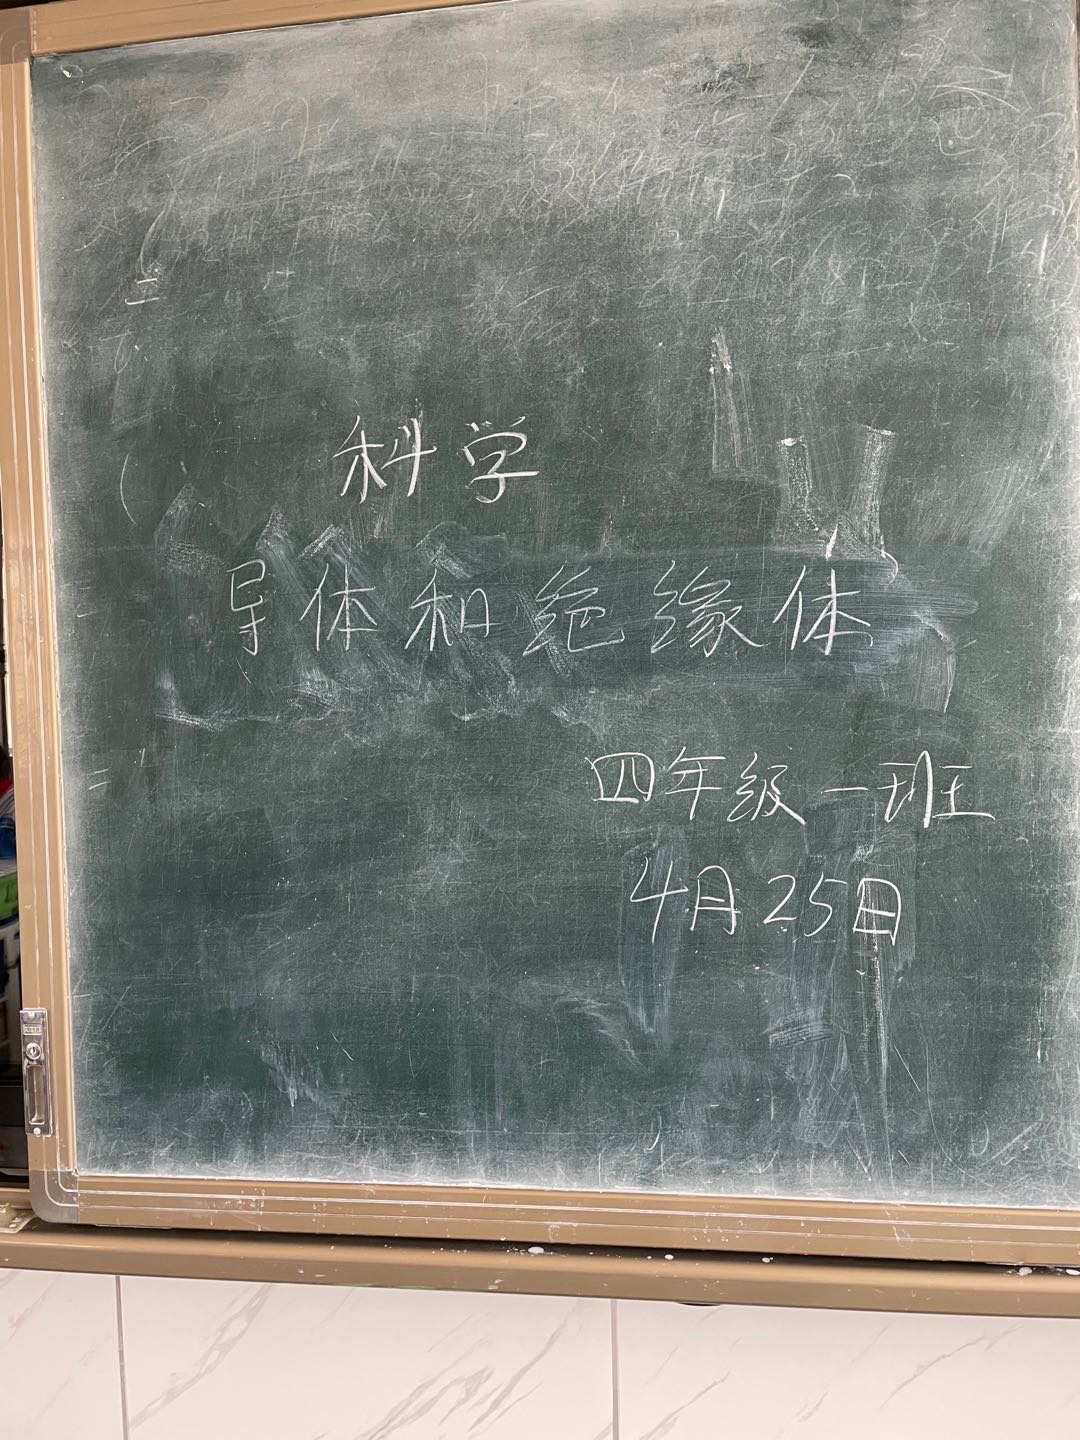 科学
导体和绝缘体
四年级一班
4月25日